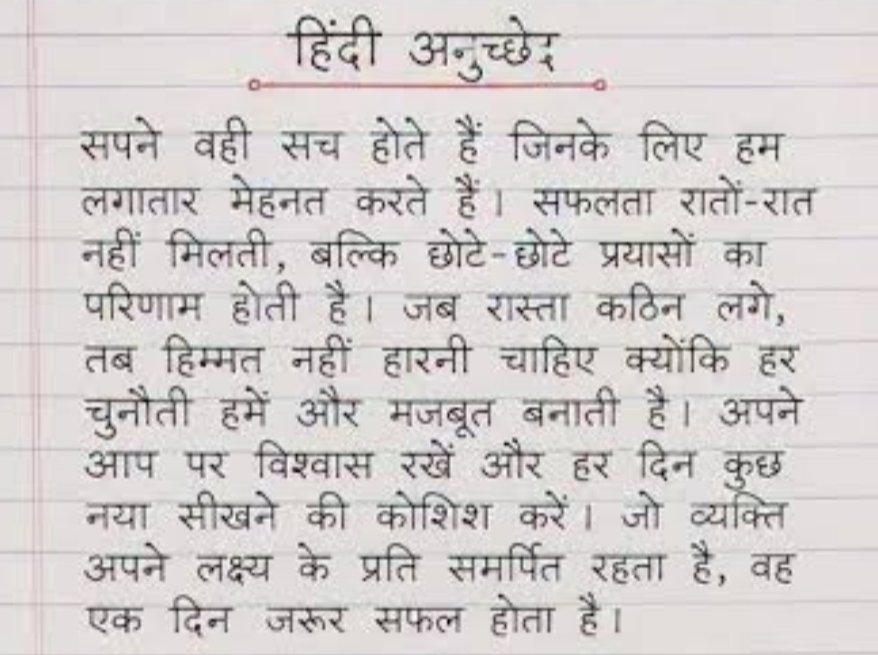 हिंदी अनुच्छेद
सपने वही सच होते हैं जिनके लिए हम
लगातार मेहनत करते हैं। सफलता रातों-रात
नहीं मिलती, बल्कि छोटे-छोटे प्रयासों का
परिणाम होती है। जब रास्ता कठिन लगे,
तब हिम्मत नहीं हारनी चाहिए क्योंकि हर
चुनौती हमें और मजबूत बनाती है। अपने
आप पर विश्वास रखें और हर दिन कुछ
नया सीखने की कोशिश करें। जो व्यक्ति
अपने लक्ष्य के प्रति समर्पित रहता है, वह
एक दिन जरूर सफल होता है।